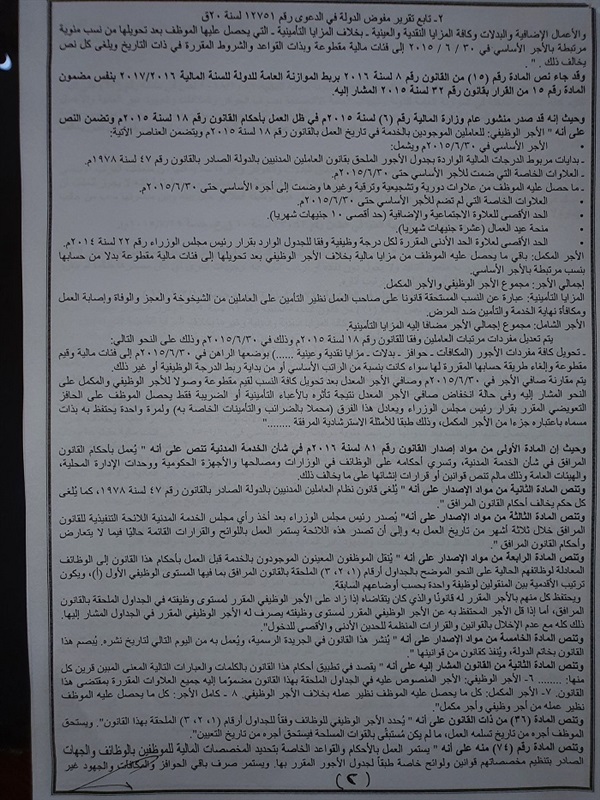 ٢- تابع تقرير مفوض الدولة في الدعوى رقم ١٢٧٥١ لسنة ٢٠ق
والأعمال الإضافية والبدلات وكافة المزايا النقدية والعينية - بخلاف المزايا التأمينية - التي يحصل عليها الموظف بعد تحويلها من نسب مئوية
مرتبطة بالأجر الأساسي في ٣٠ / ٦ / ٢٠١٥ إلى فئات مالية مقطوعة وبذات القواعد والشروط المقررة في ذات التاريخ ويلغى كل نص
يخالف ذلك . " .
وقد جاء نص المادة رقم (١٥) من القانون رقم ٨ لسنة ٢٠١٦ بربط الموازنة العامة للدولة للسنة المالية ٢٠١٧/٢٠١٦ بنفس مضمون
المادة رقم ١٥ من القرار بقانون رقم ٣٢ لسنة ٢٠١٥ المشار إليه.
وحيث إنه قد صدر منشور عام وزارة المالية رقم (٦) لسنة ٢٠١٥م في ظل العمل بأحكام القانون رقم ١٨ لسنة ٢٠١٥م وتضمن النص
على أنه " الأجر الوظيفي: للعاملين الموجودين بالخدمة في تاريخ العمل بالقانون رقم ١٨ لسنة ٢٠١٥م ويتضمن العناصر الآتية:
• الأجر الأساسي في ٢٠١٥/٦/٣٠م ويشمل:
- بدايات مربوط الدرجات المالية الواردة بجدول الأجور الملحق بقانون العاملين المدنيين بالدولة الصادر بالقانون رقم ٤٧ لسنة ١٩٧٨م.
- العلاوات الخاصة التي ضمت للأجر الأساسي حتى ٢٠١٥/٦/٣٠م.
- ما حصل عليه الموظف من علاوات دورية وتشجيعية وترقية وغيرها وضمت إلى أجره الأساسي حتى ٢٠١٥/٦/٣٠م.
• العلاوات الخاصة التي لم تضم للأجر الأساسي حتى ٢٠١٥/٦/٣٠م.
• الحد الأقصى للعلاوة الاجتماعية والإضافية (حد أقصى ١٠ جنيهات شهريا).
• منحة عيد العمال (عشرة جنيهات شهريا).
• الحد الأقصى لعلاوة الحد الأدنى المقررة لكل درجة وظيفية وفقا للجدول الوارد بقرار رئيس مجلس الوزراء رقم ٢٢ لسنة ٢٠١٤م.
الأجر المكمل: باقي ما يحصل عليه الموظف من مزايا مالية بخلاف الأجر الوظيفي بعد تحويلها إلى فئات مالية مقطوعة بدلا من حسابها
بنسب مرتبطة بالأجر الأساسي.
إجمالي الأجر: مجموع الأجر الوظيفي والأجر المكمل.
المزايا التأمينية: عبارة عن النسب المستحقة قانونا على صاحب العمل نظير التأمين على العاملين من الشيخوخة والعجز والوفاة وإصابة العمل
ومكافأة نهاية الخدمة والتأمين ضد المرض.
الأجر الشامل: مجموع إجمالي الأجر مضافا إليه المزايا التأمينية.
يتم تعديل مفردات مرتبات العاملين وفقا للقانون رقم ١٨ لسنة ٢٠١٥م وذلك في ٢٠١٥/٦/٣٠م وذلك على النحو التالي:
- تحويل كافة مفردات الأجور (المكافآت - حوافز - بدلات - مزايا نقدية وعينية ......) بوضعها الراهن في ٢٠١٥/٦/٣٠م إلى فئات مالية وقيم
مقطوعة وإلغاء طريقة حسابها المقررة لها سواء كانت بنسبة من الراتب الأساسي أو من بداية ربط الدرجة الوظيفية أو غير ذلك.
يتم مقارنة صافي الأجر في ٢٠١٥/٦/٣٠م وصافي الأجر المعدل بعد تحويل كافة النسب لقيم مقطوعة وصولا للأجر الوظيفي والمكمل على
النحو المشار إليه وفى حالة انخفاض صافي الأجر المعدل نتيجة تأثره بالأعباء التأمينية أو الضريبة فقط يحصل الموظف على الحافز
التعويضي المقرر بقرار رئيس مجلس الوزراء ويعادل هذا الفرق (محملا بالضرائب والتأمينات الخاصة به) ولمرة واحدة يحتفظ به بذات
مسماه باعتباره جزءا من الأجر المكمل، وذلك طبقا للأمثلة الاسترشادية المرفقة ........"
وحيث إن المادة الأولى من مواد إصدار القانون رقم ٨١ لسنة ٢٠١٦م في شأن الخدمة المدنية تنص على أنه " يُعمل بأحكام القانون
المرافق في شأن الخدمة المدنية، وتسري أحكامه على الوظائف في الوزارات ومصالحها والأجهزة الحكومية ووحدات الإدارة المحلية،
والهيئات العامة وذلك مالم تنص قوانين أو قرارات إنشائها على ما يخالف ذلك.
وتنص المادة الثانية من مواد الإصدار على أنه " يُلغى قانون نظام العاملين المدنيين بالدولة الصادر بالقانون رقم ٤٧ لسنة ١٩٧٨، كما يُلغى
كل حكم يخالف أحكام القانون المرافق ".
وتنص المادة الثالثة من مواد الإصدار على أنه" يُصدر رئيس مجلس الوزراء بعد أخذ رأي مجلس الخدمة المدنية اللائحة التنفيذية للقانون
المرافق خلال ثلاثة أشهر من تاريخ العمل به وإلى أن تصدر هذه اللائحة يستمر العمل باللوائح والقرارات القائمة حاليًا فيما لا يتعارض
وأحكام القانون المرافق ".
وتنص المادة الرابعة من مواد الإصدار على أنه " يُنقل الموظفون المعينون الموجودون بالخدمة قبل العمل بأحكام هذا القانون إلى الوظائف
المعادلة لوظائفهم الحالية على النحو الموضح بالجداول أرقام (١، ٢، ٣) الملحقة بالقانون المرافق بما فيها المستوى الوظيفي الأول (أ)، ويكون
ترتيب الأقدمية بين المنقولين لوظيفة واحدة بحسب أوضاعهم السابقة.
ويحتفظ كل منهم بالأجر المقرر له قانونًا والذي كان يتقاضاه إذا زاد على الأجر الوظيفي المقرر لمستوى وظيفته في الجداول الملحقة بالقانون
المرافق، أما إذا قل الأجر المحتفظ به عن الأجر الوظيفي المقرر لمستوى وظيفته يصرف له الأجر الوظيفي المقرر في الجداول المشار إليها.
ذلك كله مع عدم الإخلال بالقوانين والقرارات المنظمة للحدين الأدنى والأقصى للدخول".
وتنص المادة الخامسة من مواد الإصدار على أنه " يُنشر هذا القانون في الجريدة الرسمية، ويُعمل به من اليوم التالي لتاريخ نشره. يُبصم هذا
القانون بخاتم الدولة، ويُنفذ كقانون من قوانينها ".
وتنص المادة الثانية من القانون المشار إليه على أنه " يقصد في تطبيق أحكام هذا القانون بالكلمات والعبارات التالية المعنى المبين قرين كل
منها: ........ ٦- الأجر الوظيفي: الأجر المنصوص عليه في الجداول الملحقة بهذا القانون مضمومًا إليه جميع العلاوات المقررة بمقتضى هذا
القانون. ٧- الأجر المكمل: كل ما يحصل عليه الموظف نظير عمله بخلاف الأجر الوظيفي. ٨ - كامل الأجر: كل ما يحصل عليه الموظف
نظير عمله من أجر وظيفي وأجر مكمل".
وتنص المادة (٣٦) من ذات القانون على أنه "يُحدد الأجر الوظيفي للوظائف وفقاً للجداول أرقام (١، ٢، ٣) الملحقة بهذا القانون". ويستحق
الموظف أجره من تاريخ تسلمه العمل، ما لم يكن مُستبقًى بالقوات المسلحة فيستحق أجره من تاريخ التعيين".
وتنص المادة رقم (٧٤) منه على أنه " يستمر العمل بالأحكام والقواعد الخاصة بتحديد المخصصات المالية للموظفين بالوظائف والجهات
الصادر بتنظيم مخصصاتهم قوانين ولوائح خاصة طبقاً لجداول الأجور المقرر بها. ويستمر صرف باقي الحوافز والمكافآت والجهود غير
(٢)